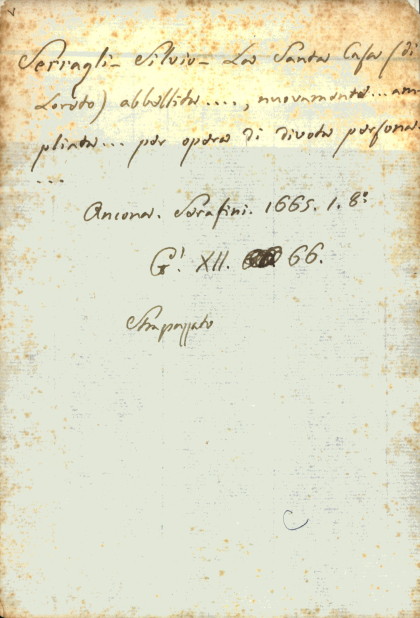 Serragli - Silvio - La Santa Casa (di
Loreto) abbellita ...., nuovamente ... am-
pliata ... per opera di divota persona
...
Ancona. Serafini. 1665. 1. 8.º
G'. XII. 66.